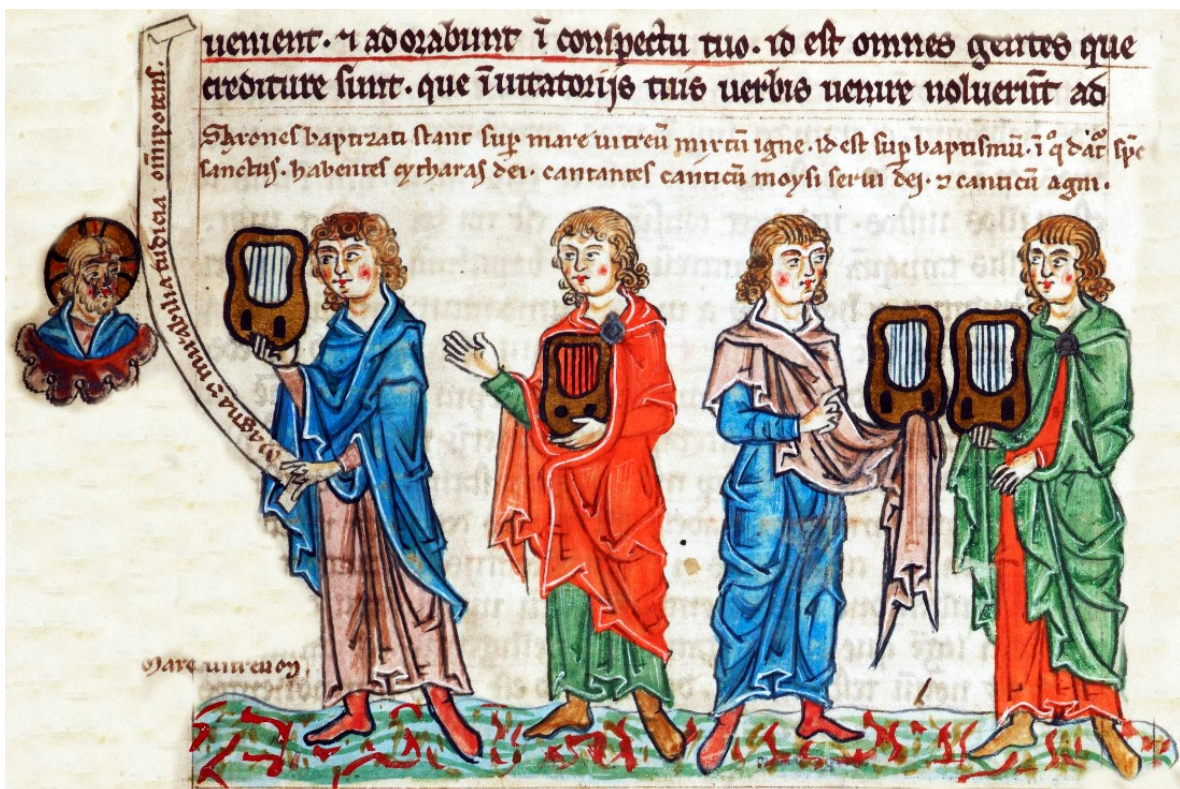 uenient· ⁊ adorabunt ī conspectu tuo· id est omnes gentes que
crediture sunt· que īuitatorijs tuis uerbis uenire noluerūt ad
Saxones baptizati stant suꝑ mare uitreū mixtū igne· id est suꝑ baptismū· ī
sanctus· habentes cytharas dei· cantantes canticū moysi serui dei· ⁊ canticū agni·
magna ⁊ mirabilia iudicia om̄ipotens·
Mare